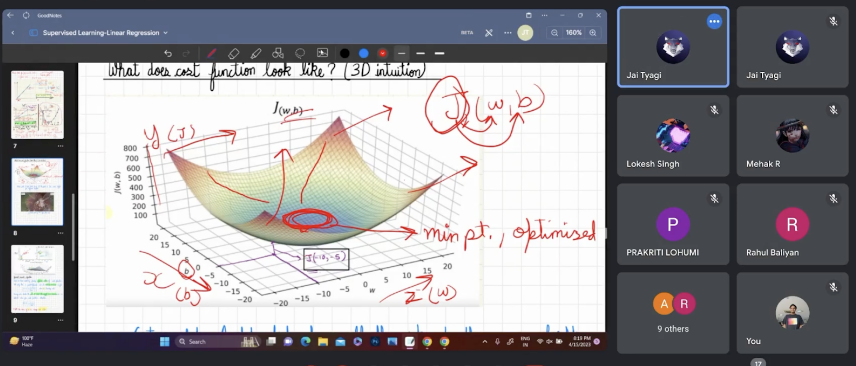 GoodNotes
Supervised Learning-Linear Regression
BETA
JT
160%
What does cost function look like? (3D intuition)
J(w,b)
J(w,b)
y (J)
800
700
600
500
400
300
200
100
J(w, b)
min pt., optimised
J(-10,-5)
20
15
10
5
0
-5
-10
-15
-20
b
x
(b)
-20
-15
-10
-5
0
5
10
15
20
w
z (w)
7
8
9
Jai Tyagi
Jai Tyagi
Lokesh Singh
Mehak R
P
PRAKRITI LOHUMI
R
Rahul Baliyan
A R
9 others
You
17
102°F
Haze
Search
ENG
IN
8:19 PM
4/15/2023